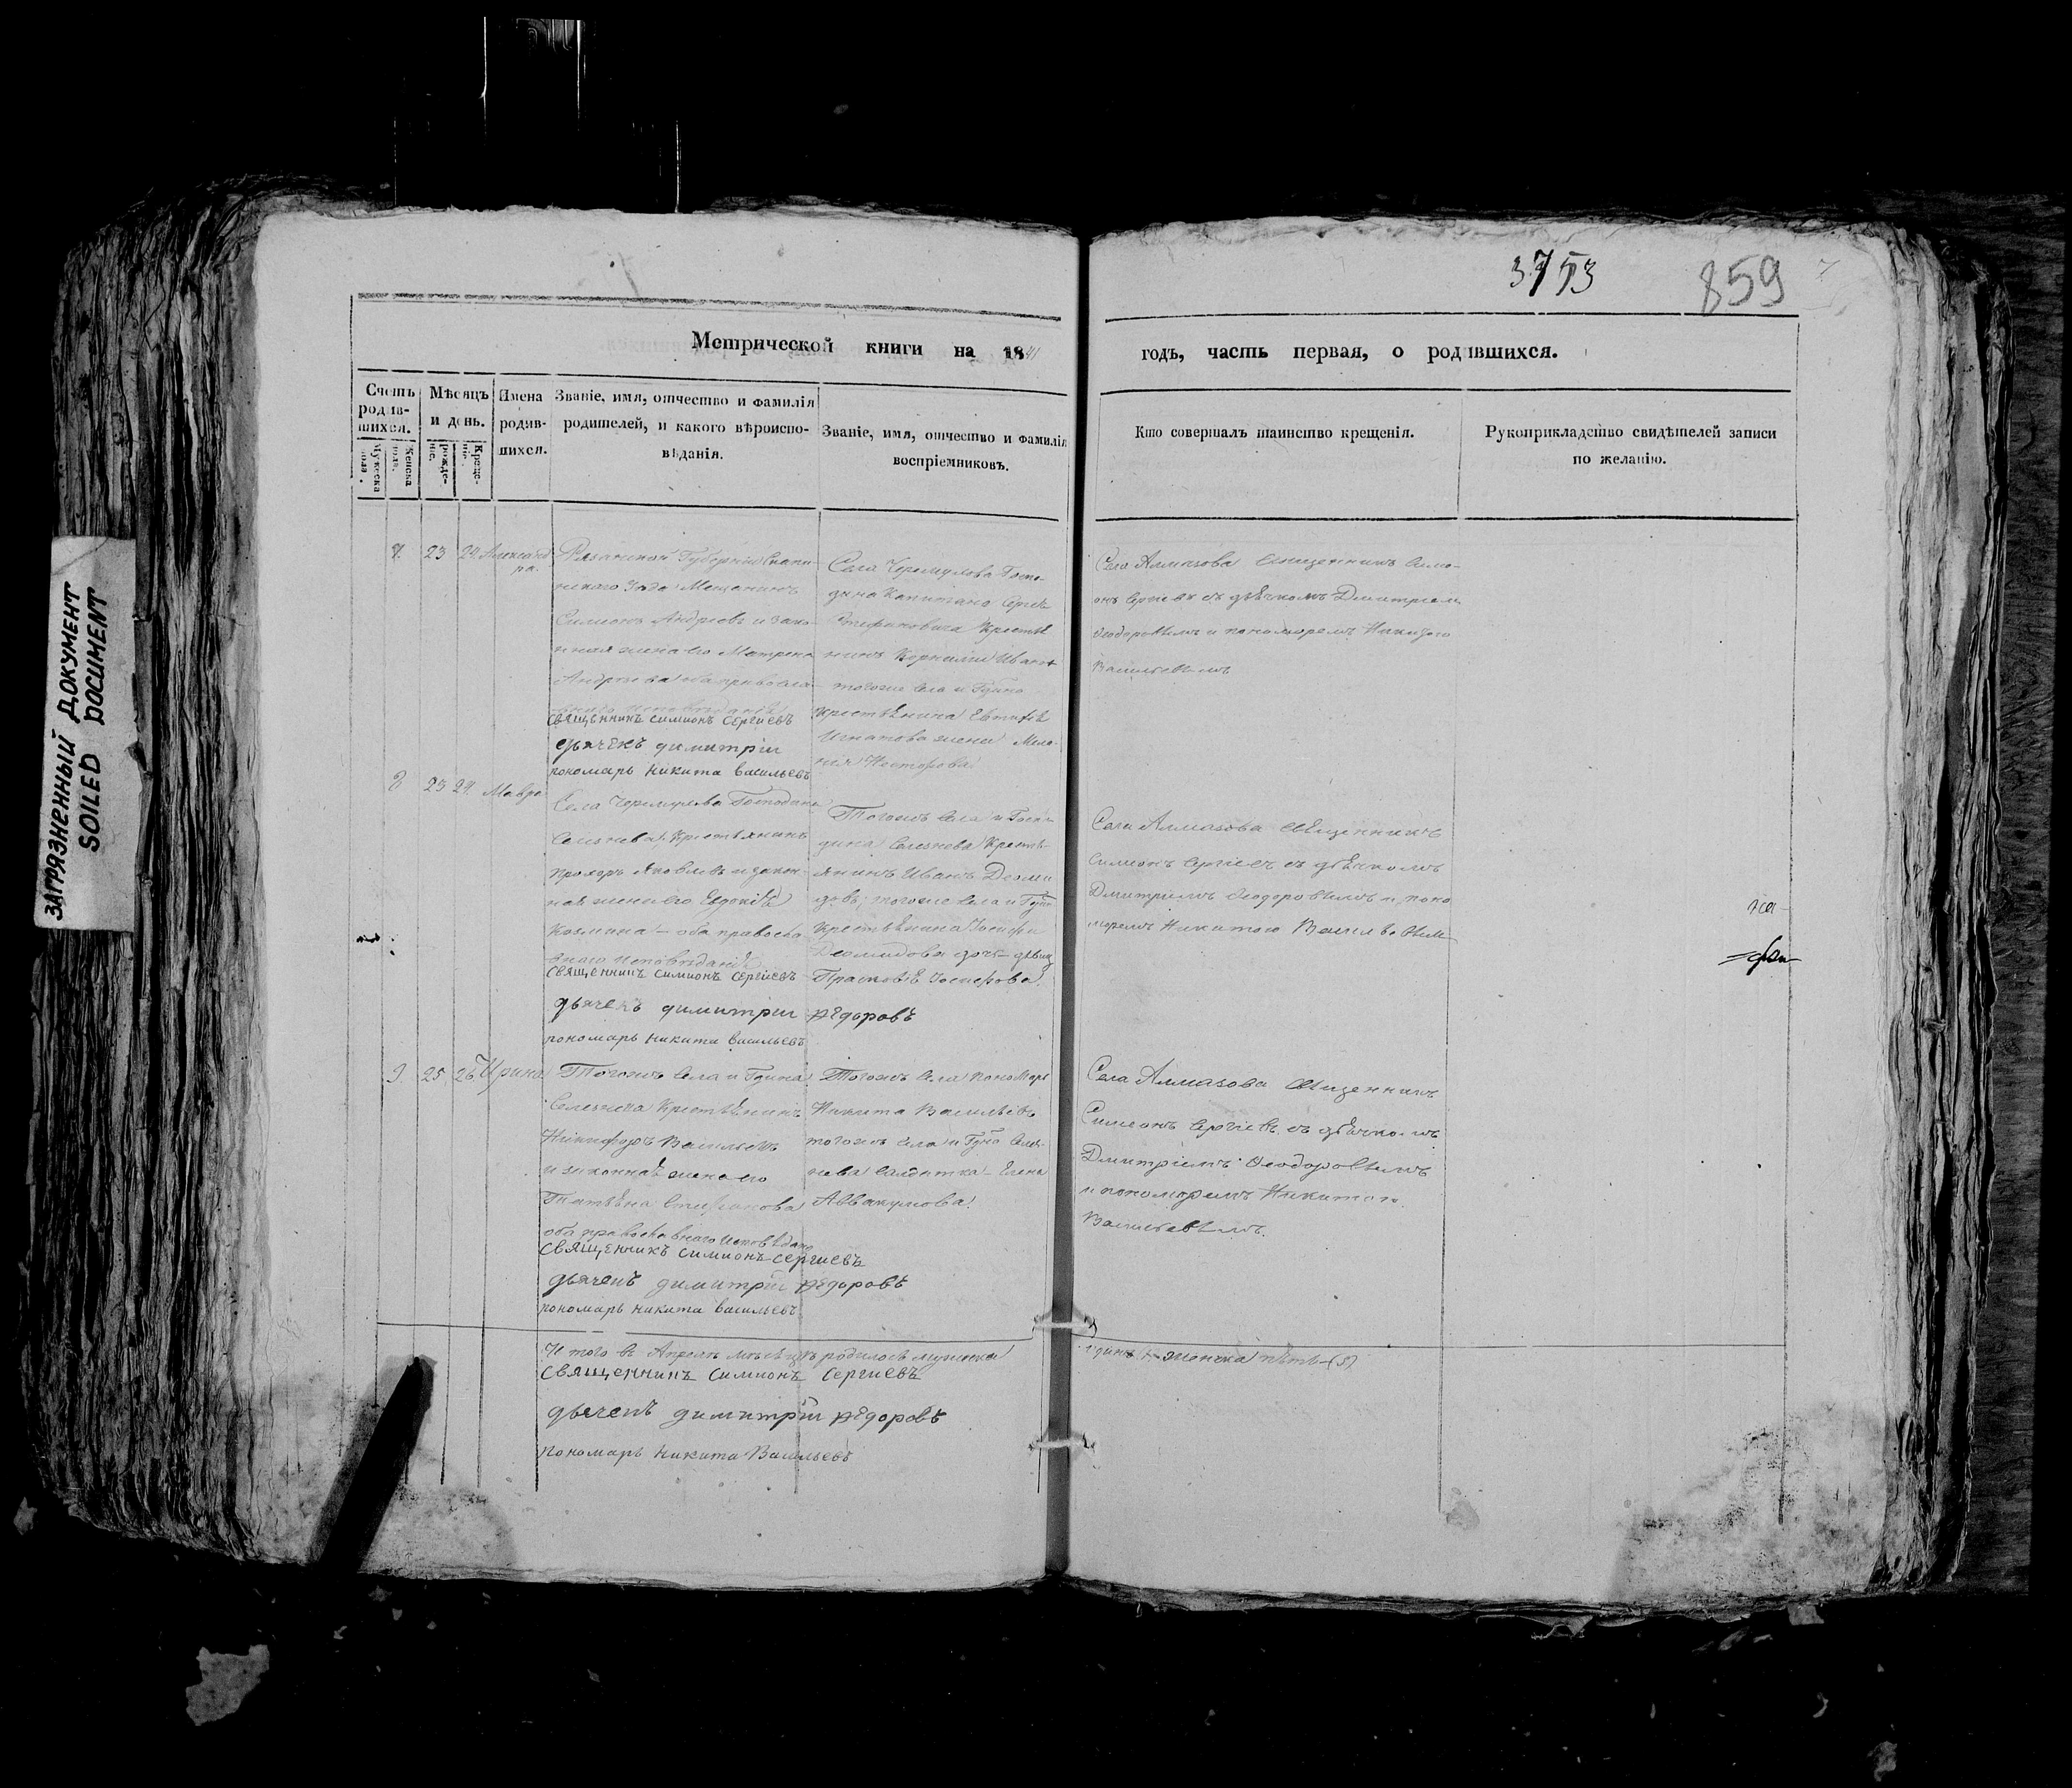 ЗАГРЯЗНЕННЫЙ ДОКУМЕНТ
SOILED DOCUMENT
3753
859
Метрической книги на 1841
годъ, часть первая, о родившихся.
Счетъ родив-шихся.
Мѣсяцъ и день.
Имена родив-шихся.
Званіе, имя, отчество и фамилія
родителей, и какого вѣроиспо-
вѣданія.
Званіе, имя, отчество и фамилія
воспріемниковъ.
Кто совершалъ таинство крещенія.
Рукоприкладство свидѣтелей записи
по желанію.
Мужеска пола.
Женска пола.
рожде-ніе.
Креще-ніе.
7. 23 24. Александ-
ра.
Рязанской Губерніи Скопи-
нскаго Мещанинъ
Симіонъ Андреевъ и зако-
нная жена его Матрена
Андреева оба правосла-
внаго исповѣданія
священникъ симионъ сергиевъ
дьячекъ димитрии
пономарь никита васильевъ
Села Госпо-
дина Капитана Сергѣя
Стефановича Крестья
нинъ Корнилій Ивановъ
тогоже села и Гдина
крестьянина Евтихія
Игнатова жена Мела-
нія Несторова
Села Алмазова Священникъ Симі-
онъ Сергіевъ съ дьячкомъ Димитріем
Ѳеодоровымъ и пономаремъ Никитою
Васильевымъ
8 23 24. Мавра
Села Господина
Селезнева Крестьянинъ
Прохоръ Яковлевъ и закон-
ная жена его Евдокія
Козмина – оба правосла
внаго исповѣданія
священникъ симионъ сергиевъ
дьячекъ димитрии ѳедоровъ
пономарь никита васильевъ
Тогожъ села и Госпо-
дина Селезнева Кресть-
янинъ Иванъ Деоми
довъ, тогоже села и Гдина
Крестьянина Іосифа
Деомидова дочь – дѣвица
Прасковія Іосифова.
Села Алмазова священникъ
Симионъ Сергіевъ съ дьячкомъ
Димитріемъ Ѳеодоровымъ и поно
маремъ Никитою Васильевым
9. 25. 26. Ирина
Тогожъ села и Гдина
Селезнева Крестьянинъ
Никифоръ Васильевъ
и законная жена его
Татьяна Стефанова
оба православнаго исповѣданія
священникъ симионъ сергиевъ
дьячекъ димитрии ѳедоровъ
пономарь никита васильевъ
Тогожъ села пономарь
Никита Васильевъ
тогожъ села и Гдна Селез-
нева салдатка – Елена
Аввакумова.
Села Алмазова священникъ
Симеонъ Сергіевъ съ дьячкомъ
Димитріемъ Ѳеодоровымъ
и пономаремъ Никитою
Васильевымъ.
Итого въ Апрелѣ мѣсяцѣ родилось мужеска
одинъ женска пять (5)
священникъ симионъ сергиевъ
дьячекъ димитрии ѳедоровъ
пономарь никита Васильевъ